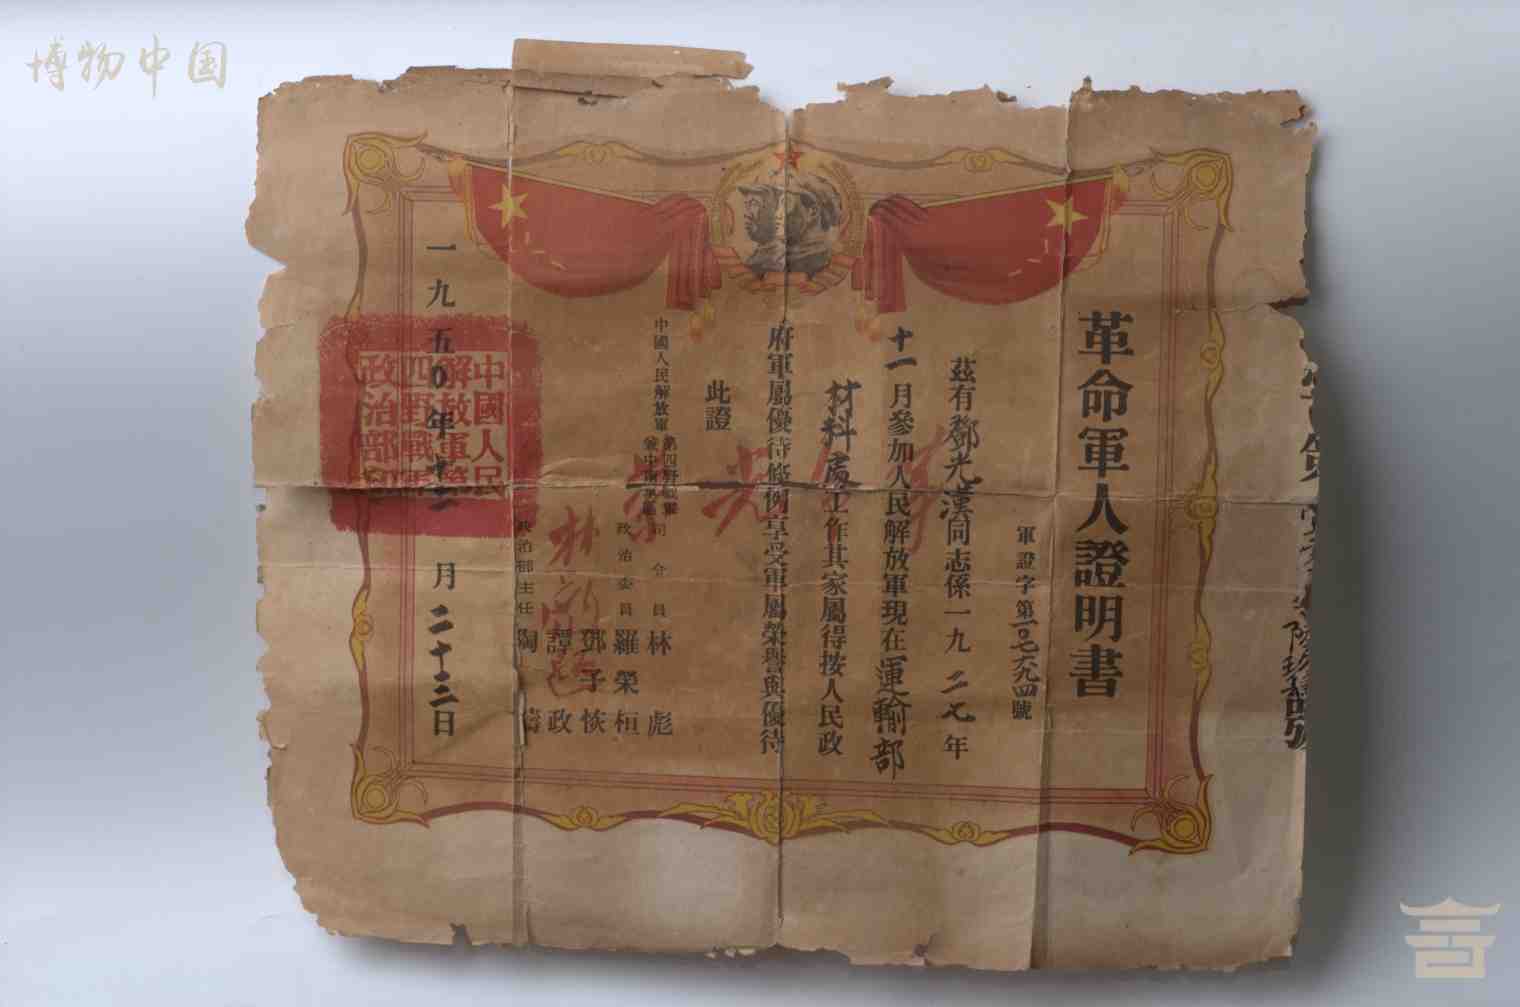 博物中国
革命軍人證明書
軍證字第一〇七六九四號
茲有鄧光漢同志係一九二七年
十一月參加人民解放軍現在運輸部
材料處工作其家屬得按人民政
府軍屬優待條例享受軍屬榮譽與優待
此證
光荣
中國人民解放軍第四野戰軍
司令員 林彪
政治委員 羅榮桓
鄧子恢
譚政
政治部主任 陶鑄
一九五〇年十二月二十三日
中國人民
解放軍第
四野戰軍
政治部印